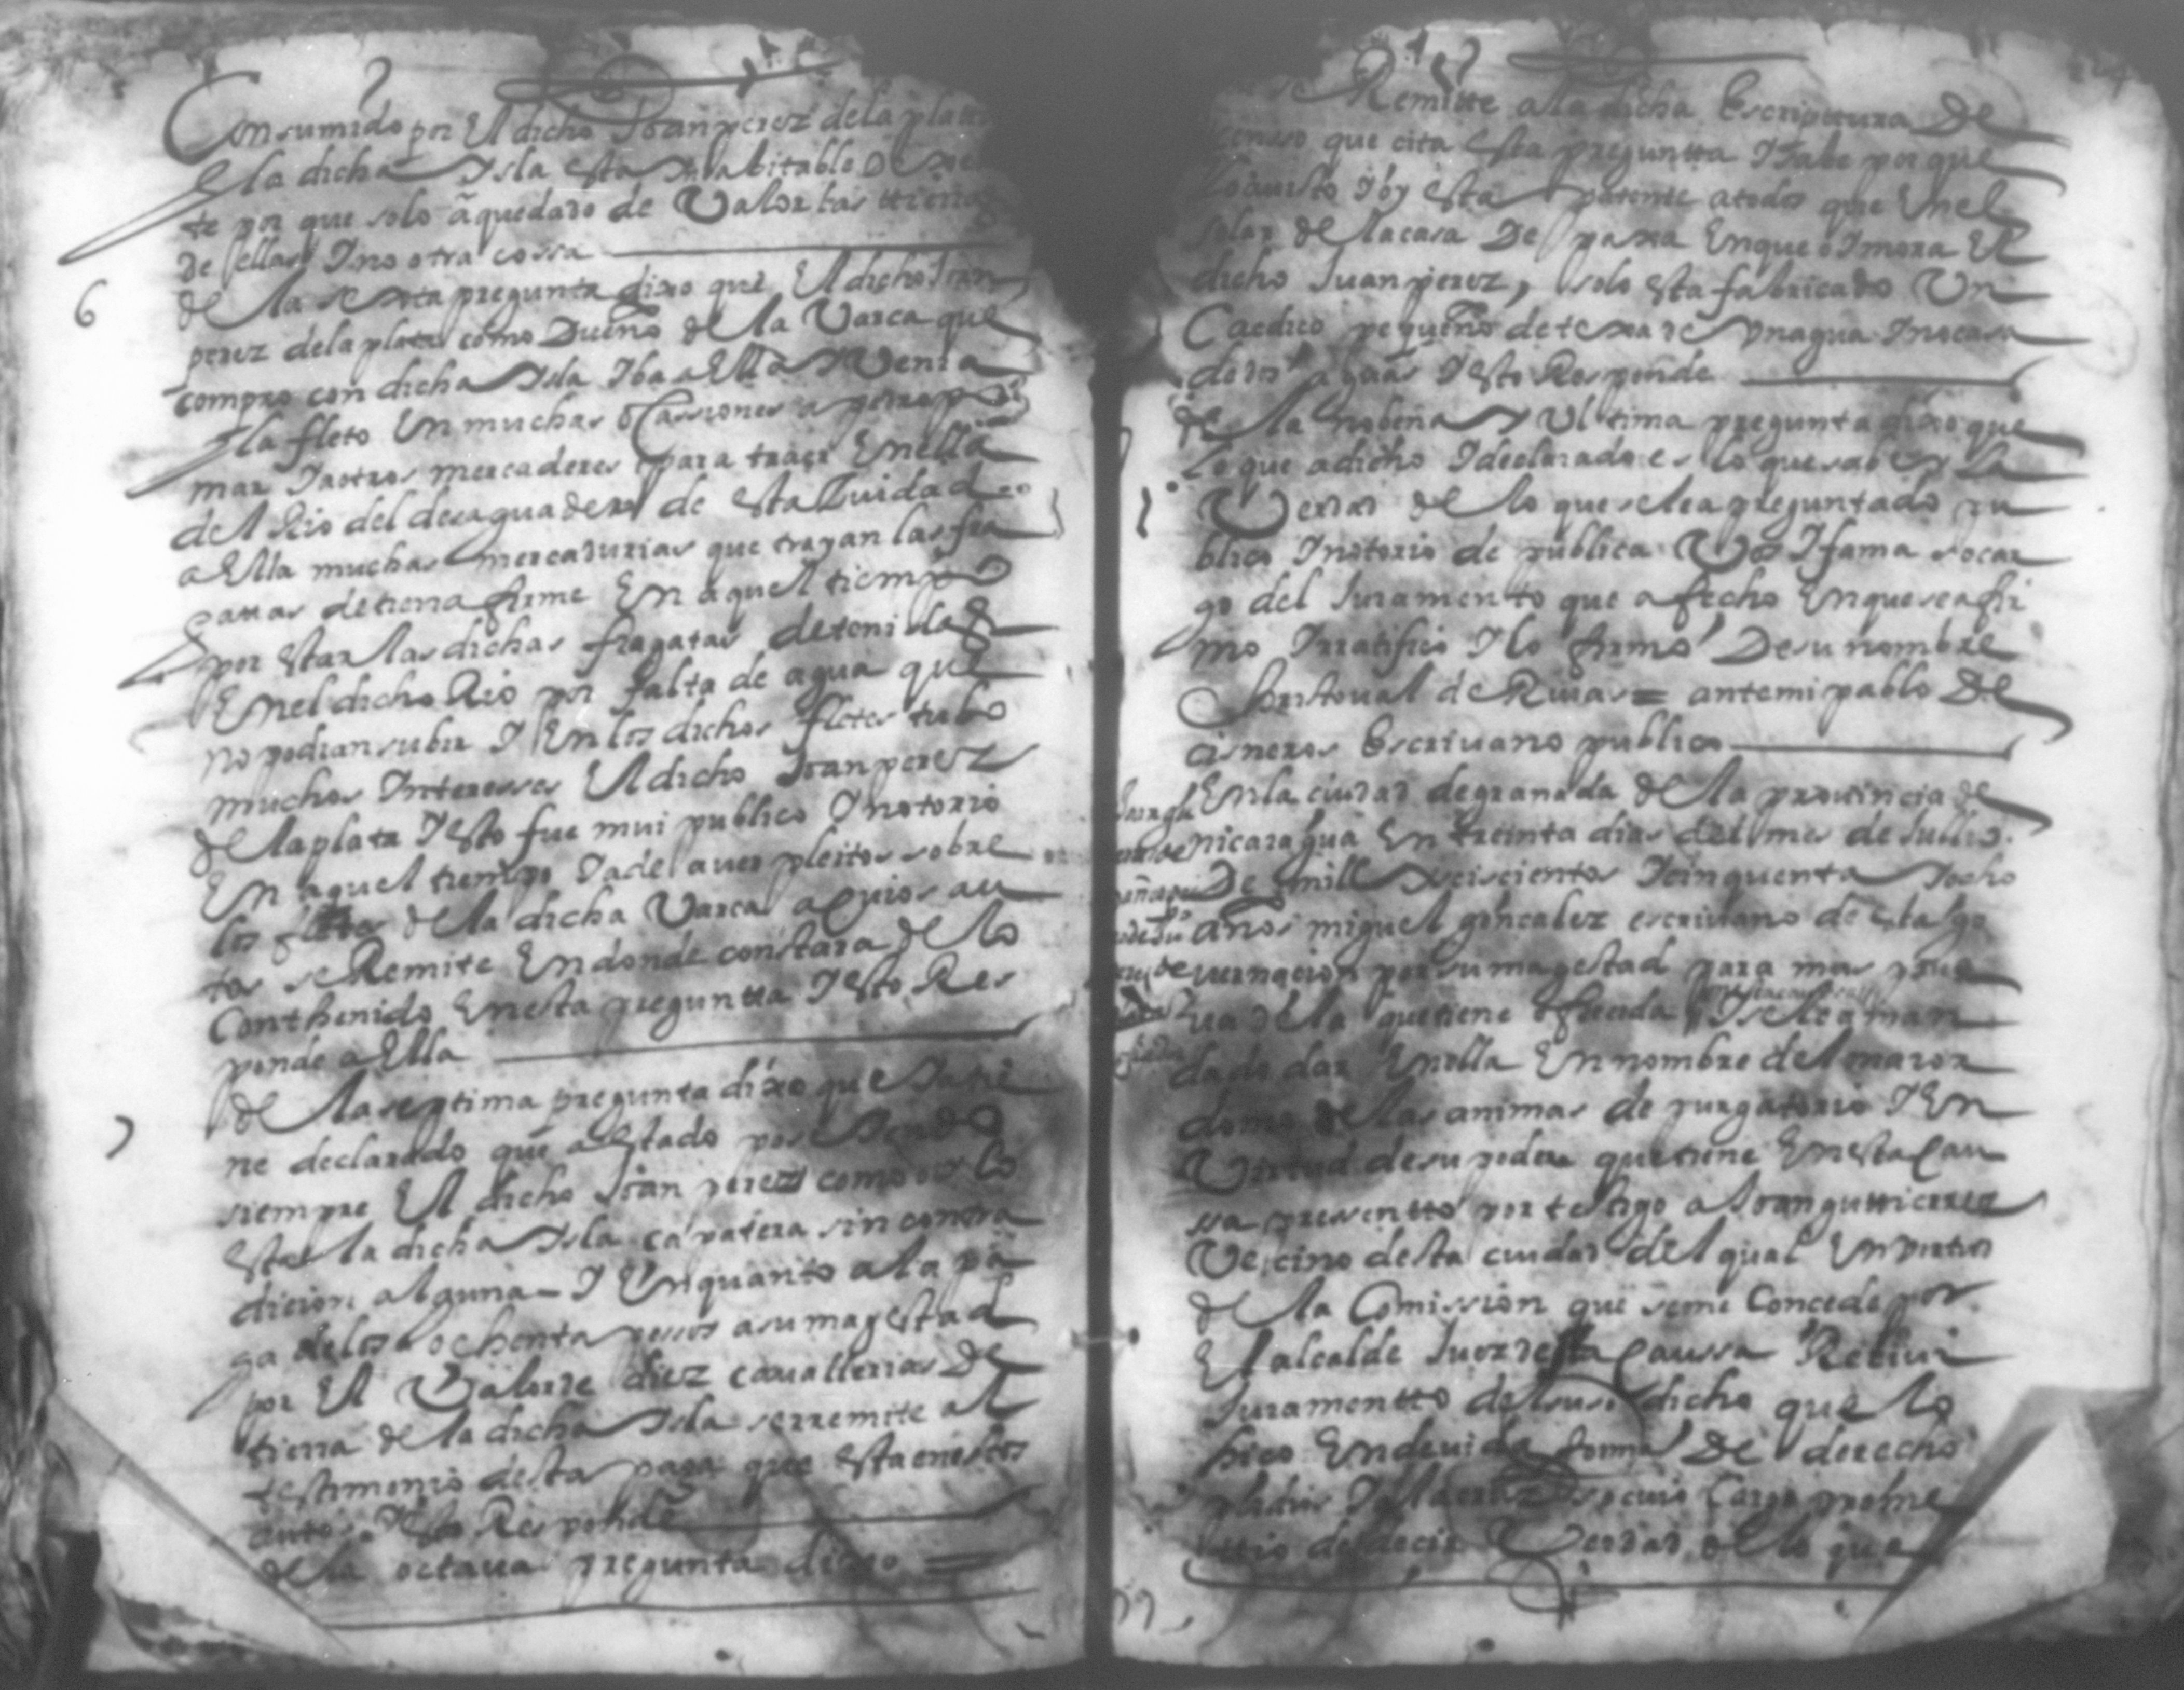 Consumido por El dicho Joan perez dela plata
la dicha Isla esta inabitable De
te por que solo a quedado de Valor las tierras
de ellas I no otra cossa
6
de la sexta pregunta dixo que El dicho Joan
perez dela plata como Dueño de la Varca que
compro con dicha Isla Iba a Ella y Venia
I la fleto En muchas ocassiones a
mar I a otros mercaderes para traer Enella
del Rio del desaguadero de esta Ciudad
a Ella muchas mercadurias que trayan las fra
gatas de tierra firme En aquel tiempo
por estar las dichas fragatas detenidas
Enel dicho Rio por falta de agua que
no podian subir I En los dichos fletes tubo
muchos Interesses El dicho Joan perez
de la plata I esto fue mui publico I notorio
En aquel tiempo I a de aver pleitos sobre
los fletes de la dicha Varca a cuios au
tos se Remite En donde constara de lo
Conthenido Enesta preguntta I esto Res
ponde a Ella
7
de la septima pregunta dixo que Ia tie
ne declarado que a Estado posseiendo
siempre El dicho Joan perez como oy lo
Esta la dicha Isla çapatera sin contra
dicion alguna I En quanto a la pa
ga de los ochenta pessos a su magestad
por El Valor de diez cavallerias De
tierra de la dicha Isla se rremite al
testimonio desta paga que esta en estos
autos I esto Responde
de la octava pregunta dixo
se Remitte a la dicha Escripttura De
censso que cita Esta preguntta I save por que
lo a visto I oy esta patente a todos que Enel
solar de la casa De paxa En que oi mora El
dicho Juan perez, solo esta fabricado Un
Caedico pequeño de texa de Un agua I no casa
de dos aguas I esto Responde
de la nobena y Ultima pregunta dixo que
lo que a dicho I declarado es lo que save y la
Verdad de lo que se le a preguntado pu
blico I notorio de publica Voz I fama so car
go del Juramento que a fecho En que se afir
mo I rratifico I lo firmo De su nombre
Christoual de Riuas = ante mi pablo De
cisneros Escriuano publico
En la ciudad de granada de la prouincia de
nicaragua En treinta dias del mes de Jullio
De mill y seiscientos I cinquenta I ocho
años miguel gonçalez escriuano de esta go
uernacion por su magestad para mas prue
ua de la que tiene ofrecida I se le a man
dado dar Enella En nombre del mayor
domo de las animas de purgatorio I En
Virtud de su poder que tiene Enesta Cau
ssa pressentto por testigo a Joan guttierrez
Vecino desta ciudad del qual En virtud
de la Comission que se me Concede por
El alcalde Juez desta Caussa Reciui
Juramentto del susodicho que lo
hico En deuida forma De derecho
por dios I la cruz so cuio Cargo prome
ttio de decir Verdad de lo que